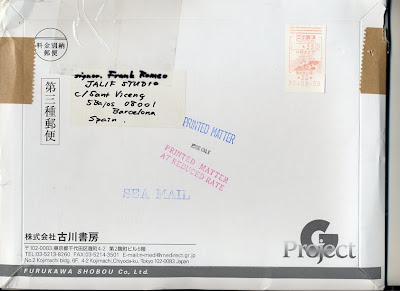 料金別納
郵便
第三種郵便
signor. Frank Romeo
JALIF STUDIO
c/Sant Vicenç
5Bajos 08001
Barcelona
Spain.
PRINTED MATTER
PRINTED MATTER
AT REDUCED RATE
SEA MAIL
株式会社 古川書房
〒102-0083 東京都千代田区麹町4-2 第2麹町ビル6階
TEL:03-5213-8260 FAX:03-5214-3501 E-mail:n-med@nedirect.gr.jp
No.2 Kojimachi bldg. 6F, 4-2 Kojimachi,Chiyoda-ku, Tokyo 102-0083 Japan
FURUKAWA SHOBOU Co., Ltd.
G
Project